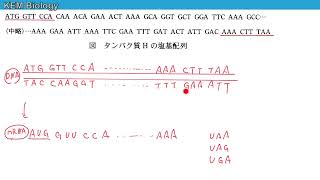 KEM Biology
ATG GTT CCA CAA ACA GAA ACT AAA GCA GGT GCT GGA TTC AAA GCC…
(中略)… AAA GAA ATT AAA TTC GAA TTT GAT ACT ATT GAC AAA CTT TAA
図 タンパク質 H の塩基配列
DNA
ATG GTT CCA ……… AAA CTT TAA
TAC CAA GGT ……… TTT GAA ATT
mRNA
AUG GUU CCA ……… AAA UAA
UAG
UGA